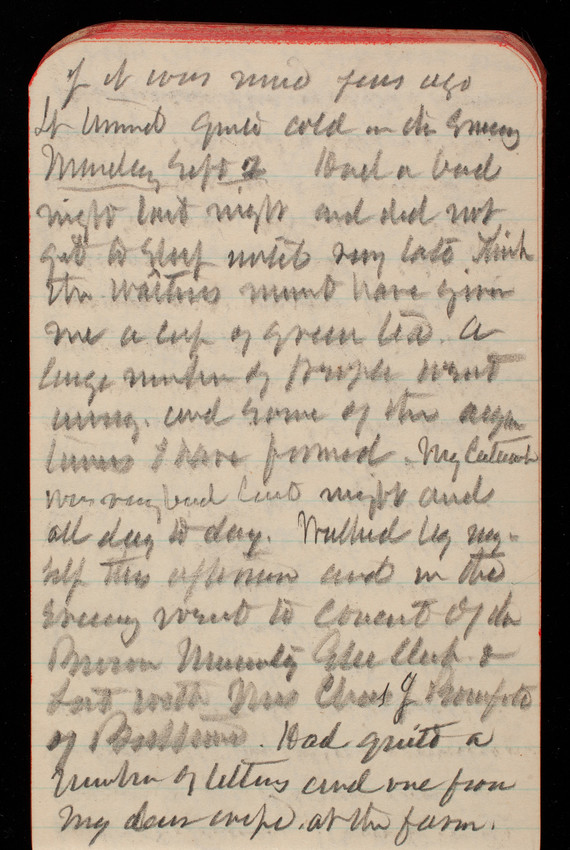 if it was nine years ago
It turned quite cold in the Evening
Monday Sept 2 Had a bad
night last night and did not
get to sleep until very late think
the waitress must have given
me a cup of green tea. A
large number of people went
away. and some of the
I have formed. My Catarrh
was very bad last night and
all day to day. Walked by my-
self this afternoon and in the
Evening went to Concert of the
Brown University Glee Club &
Sat with Mrs Chas
of. Had quite a
number of letters and one from
My dear wife. at the farm.